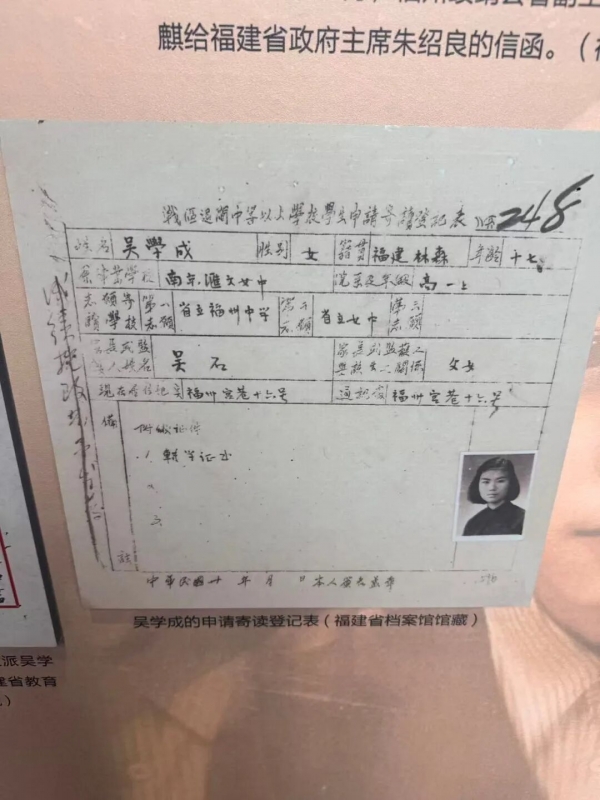 麒给福建省政府主席朱绍良的信函。（
戰區退閩中等以上學校學生申請寄讀登記表 248
姓名 吳學成 性別 女 籍貫 福建林森 年齡 十七
肄業學校 南京滙文女中 院系及年級 高一上
志願寄讀學校 第一志願 省立福州中学 第二志願 省立女中 第三志願
家長或監護人姓名 吳石 父女
現在寄住地 福州宮巷十六号 通訊處 福州宮巷十六号
備
附繳証件
1 轉学证書
二
註
中華民國 年 月 日
吴学成的申请寄读登记表（福建省档案馆馆藏）
派吴学
建省教育